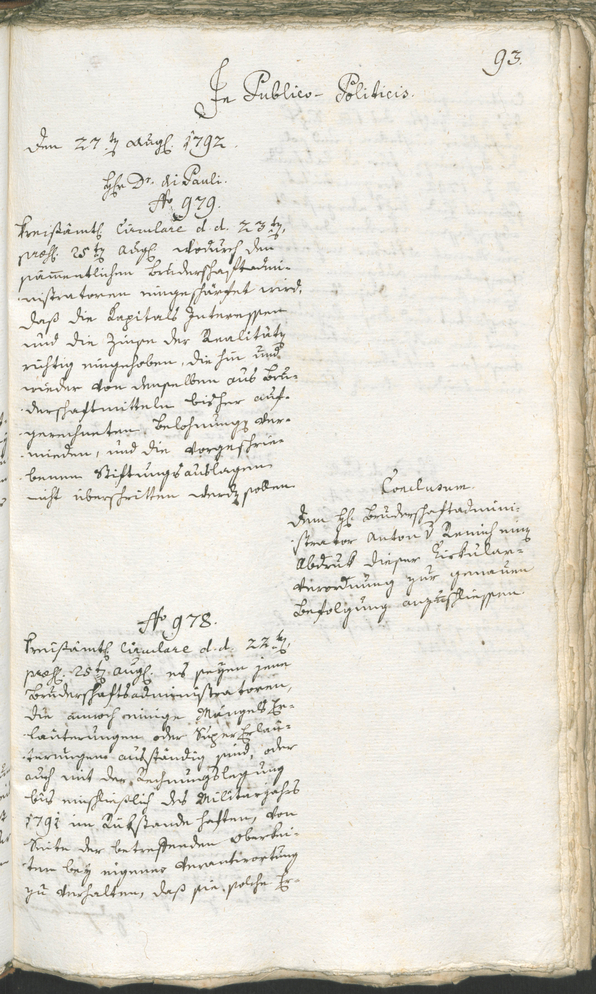 93.
In Publico-Politicis.
Den 27t. Augt. 1792.
Hr. Dr. di Pauli.
No. 979.
Kreisämtl. Circulare d. d. 23t.
pros. 25t. Augt. wodurch den
sämentlichen Bruderschaftadmi-
nistratoren eingeschärfet wird,
daß die Kapitals Interessen
und die Zinse der Realität
richtig eingehoben, die hin und
wieder von denselben aus Bru-
derschaftmitteln bisher auf-
gerechneten Belohnungen ver-
mieden, und die vorgeschrie-
benen Stiftungsauslagen
nicht überschritten werden sollen
Conclusum.
Dem H. Bruderschaftadmini-
strator Anton v Remich ein
Abdruk dieser Zirkular-
verordnung zur genauen
Befolgung anzuschliessen.
No. 978.
Kreisämtl. Circulare d. d. 22t.
pros. 25t. Augt. es seyen jene
Bruderschaftsadministratoren,
die annoch einige Mängels Er-
läuterungen oder SuperErläu-
terungen ausständig sind, oder
auch mit der Rechnungslegung
bis einschließlich des Militarjahrs
1791 im Rükstande haften, von
Seite der betreffenden Obrigkei-
ten bey eigener Verantwortung
zu verhalten, daß sie solche Er-